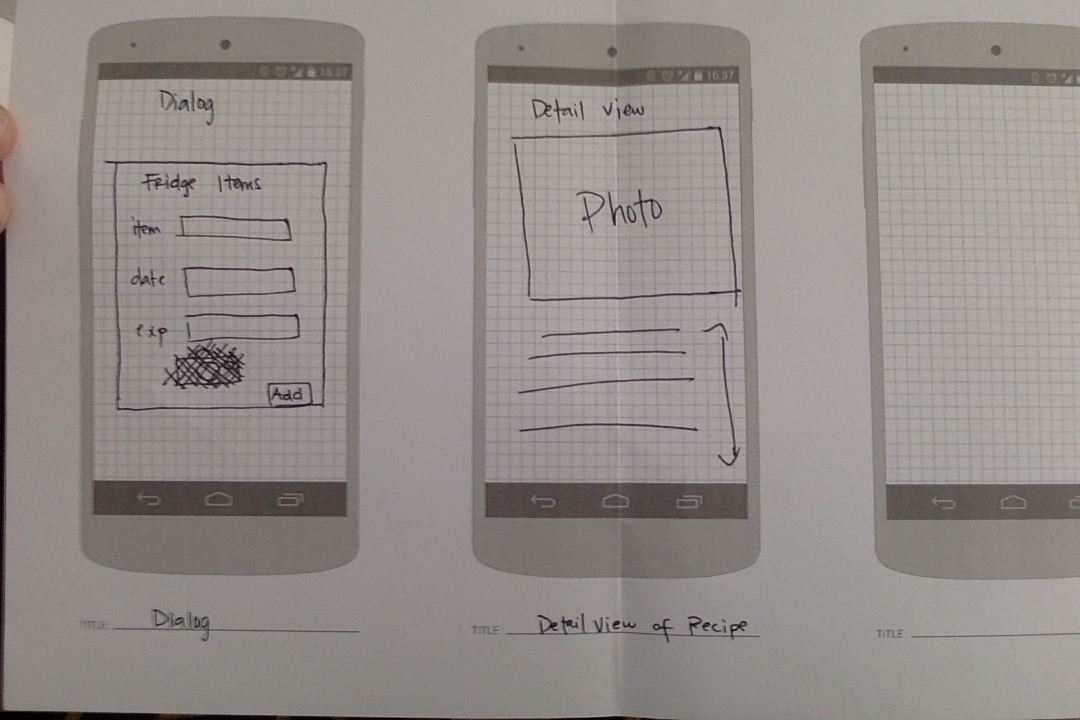 16:37
Dialog
Fridge Items
item
date
exp
Add
TITLE: Dialog
16:37
Detail view
Photo
TITLE: Detail View of Recipe
TITLE: